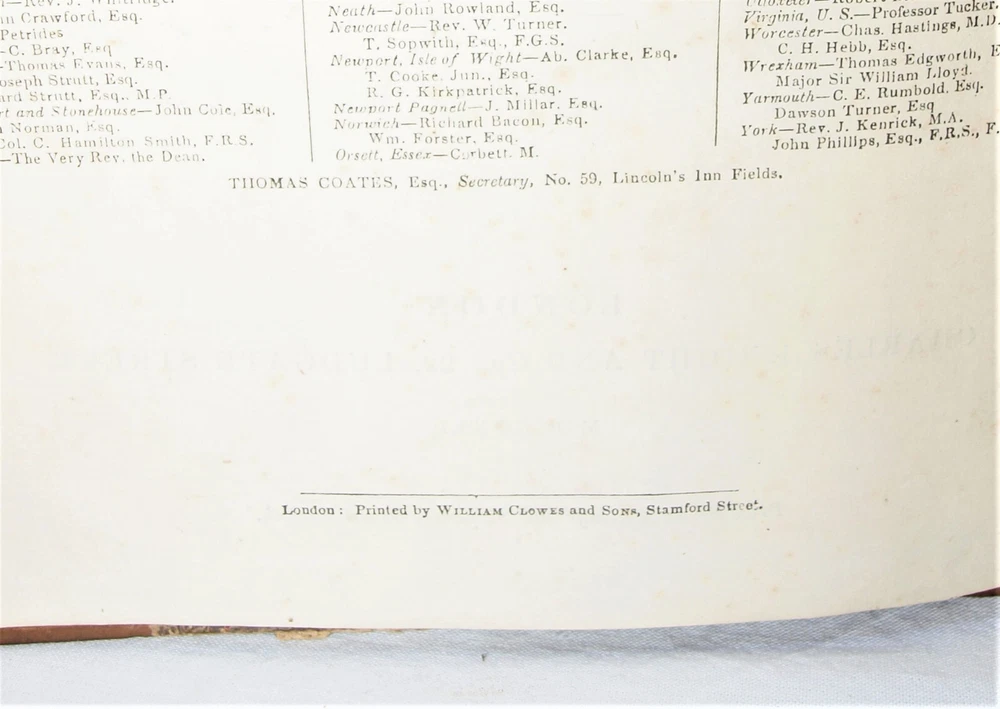 Rev. J. Whitridge.
Crawford, Esq.
Petrides
—C. Bray, Esq
—Thomas Evans, Esq.
Joseph Strutt, Esq.
Strutt, Esq., M.P.
and Stonehouse—John Cole, Esq.
Norman, Esq.
Col. C. Hamilton Smith, F.R.S.
—The Very Rev. the Dean.
Neath—John Rowland, Esq.
Newcastle—Rev. W. Turner.
T. Sopwith, Esq., F.G.S.
Newport, Isle of Wight—Ab. Clarke, Esq.
T. Cooke, Jun., Esq.
R. G. Kirkpatrick, Esq.
Newport Pagnell—J. Millar, Esq.
Norwich—Richard Bacon, Esq.
Wm. Forster, Esq.
Orsett, Essex—Corbett, M.
Virginia, U. S.—Professor Tucker.
Worcester—Chas. Hastings, M.D.
C. H. Hebb, Esq.
Wrexham—Thomas Edgworth, E
Major Sir William Lloyd.
Yarmouth—C. E. Rumbold, Esq.
Dawson Turner, Esq
York—Rev. J. Kenrick, M.A.
John Phillips, Esq., F.R.S., F.
THOMAS COATES, Esq., Secretary, No. 59, Lincoln's Inn Fields.
London: Printed by William Clowes and Sons, Stamford Street.